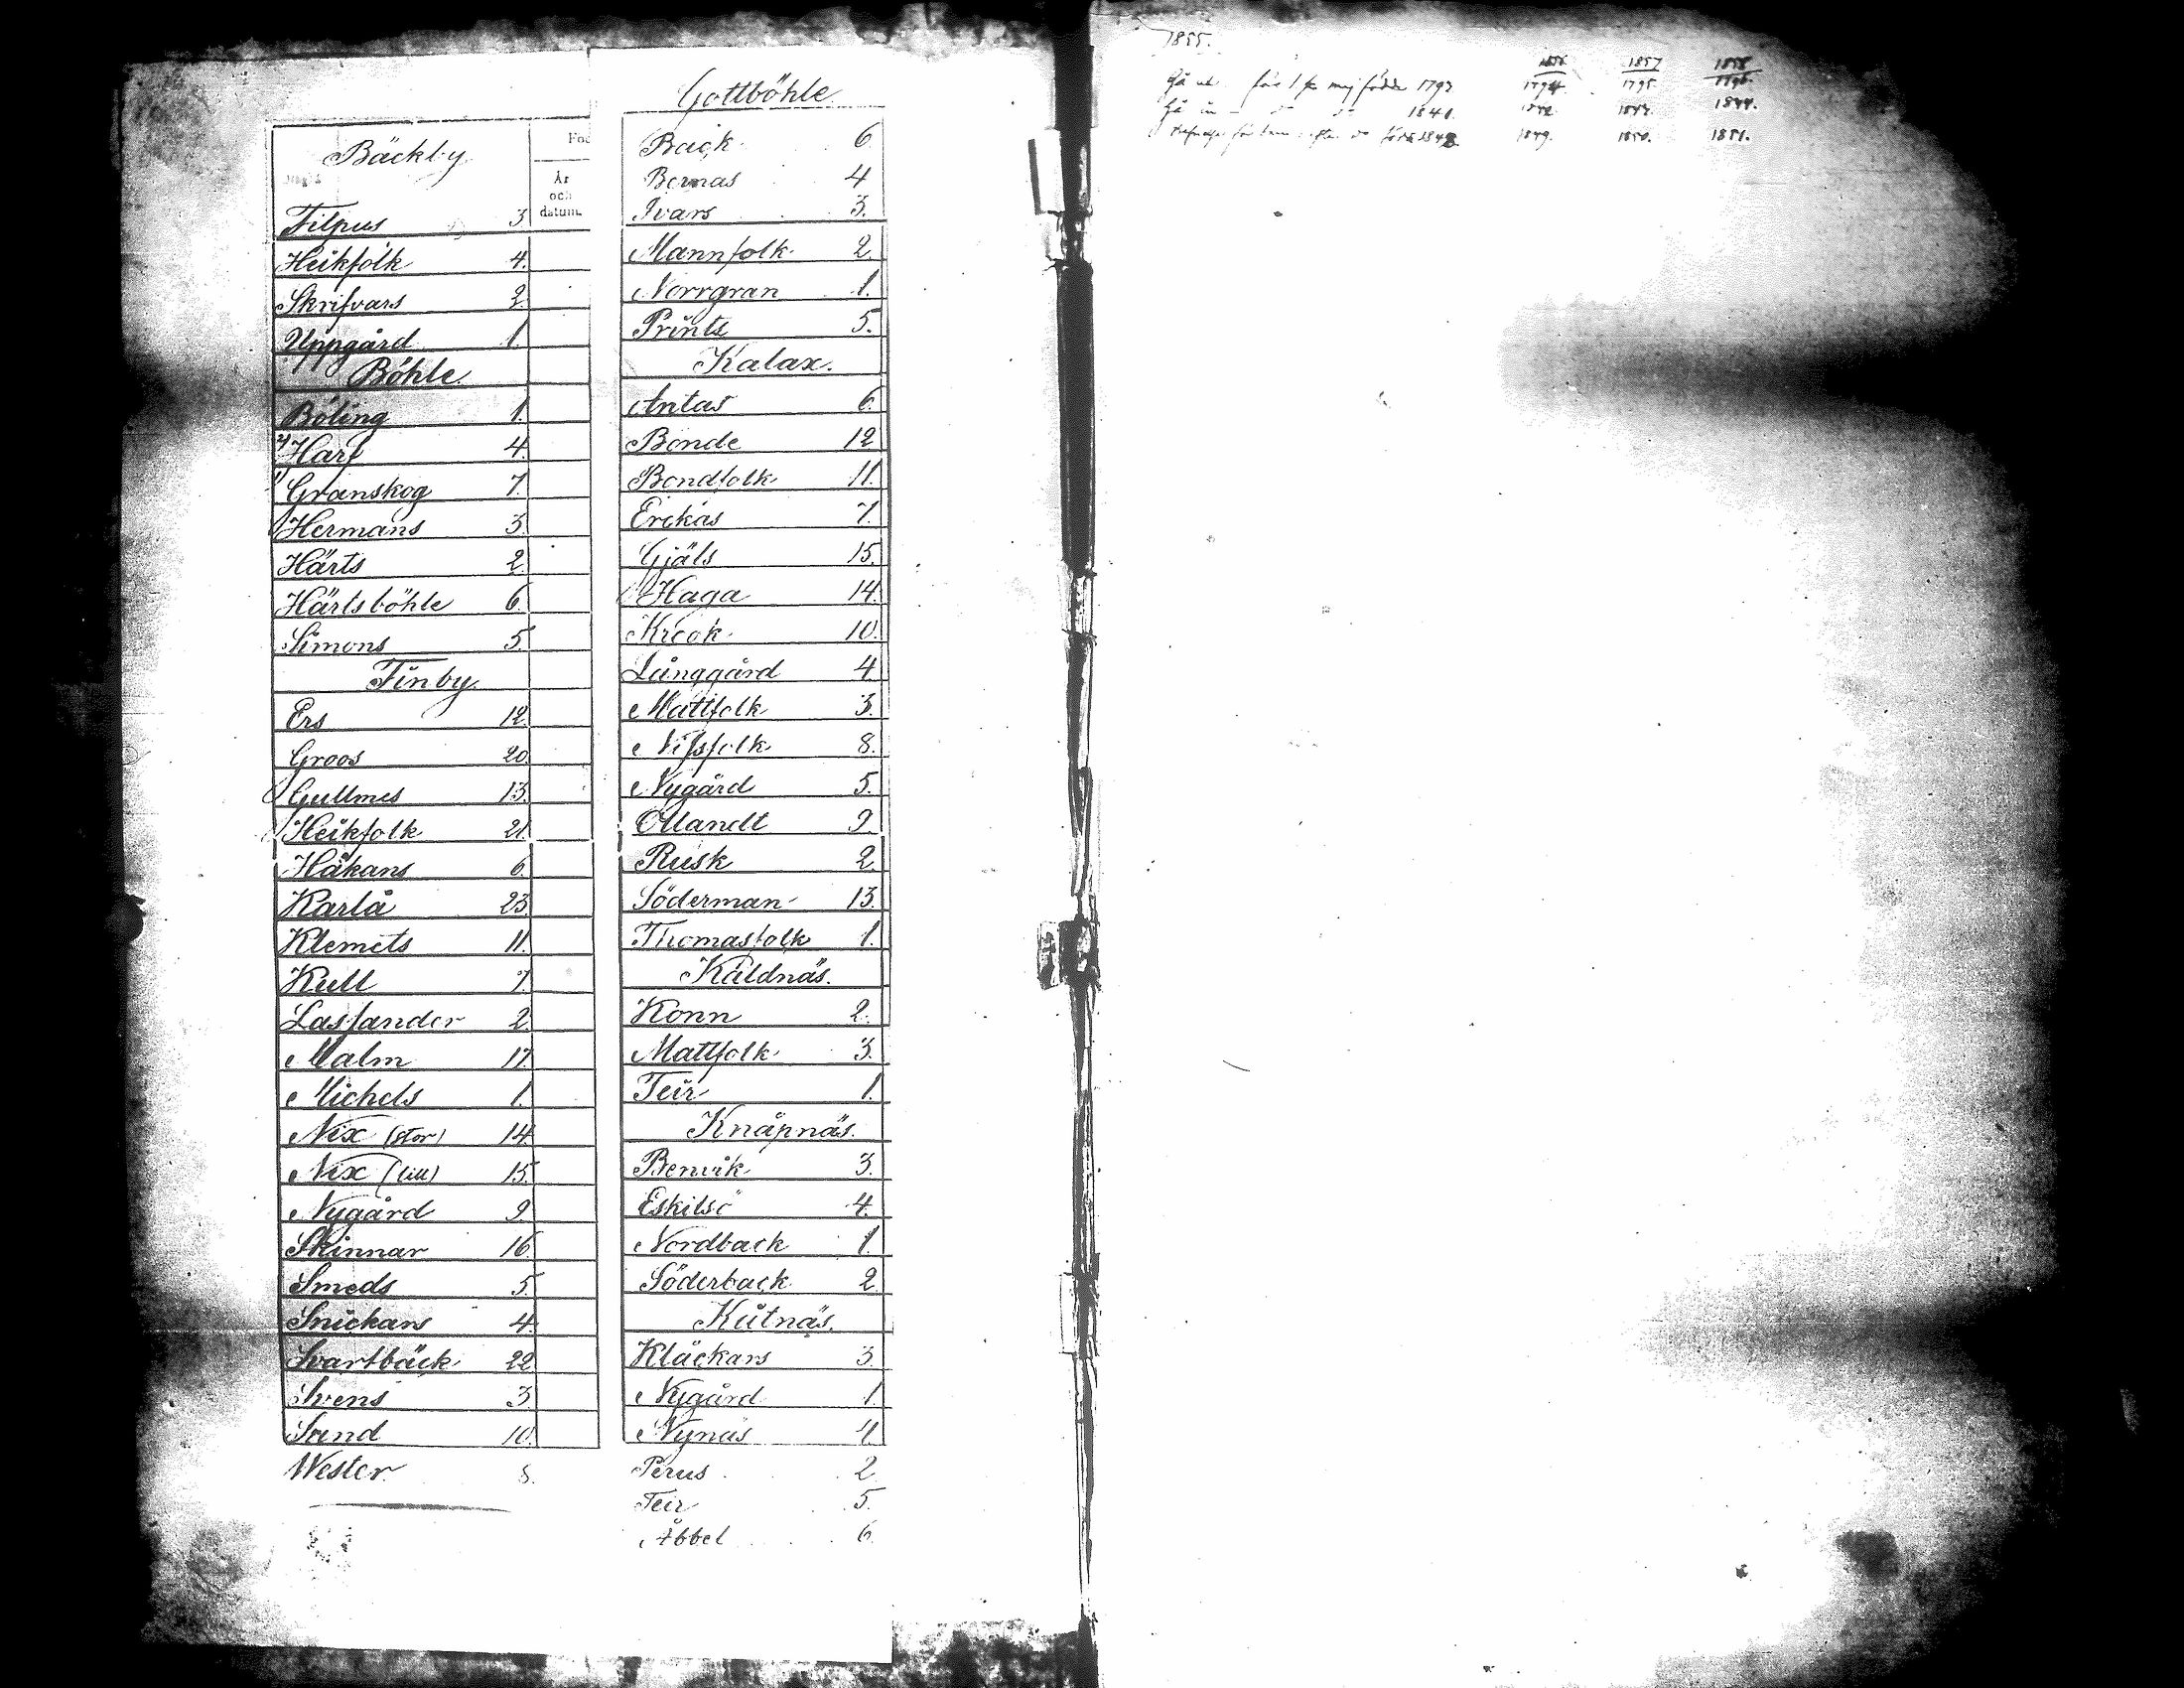 Bäckby
Föd
År
och
datum.
Filpus 3
Heikfolk 4.
Skrifvars 2
Uppgård 1
Böhle.
Böling 1.
2) Harf 4.
1) Granskog 7.
Hermans 3.
Härts 2
Härtsböhle 6.
Simons 5.
Finby.
Ers 12.
Groos 20
Gullmes 13.
Heikfolk 21.
Håkans 6.
Karlå 23
Klemets 11.
Kull 7.
Lassander 2
Malm 17.
Michels 1.
Nix (stor) 14
Nix (lill) 15.
Nygård 9.
Skinnar 16.
Smeds 5.
Snickars 4.
Svartbäck 22
Svens 3
Sund 10.
Wester 8.
Gottböhle.
Back 6.
Bernas 4
Ivars 3.
Mannfolk 2.
Norrgran 1.
Prints 5.
Kalax.
Antas 6.
Bonde 12
Bondfolk 11.
Erckas 7.
Gjäls 15.
Haga 14.
Krook 10.
Långgård 4.
Mattfolk 3.
Nissfolk 8.
Nygård 5.
Ollandt 9.
Rusk 2.
Söderman 13.
Thomasfolk 1.
Kaldnäs.
Konn 2.
Mattfolk 3.
Teir 1.
Knåpnäs.
Benvik 3.
Eskilsö 4.
Nordback 1.
Söderback 2
Kutnäs.
Klåckars 3.
Nygård 1
Nynäs 4
Perus 2
Teir 5.
Åbbel 6.
1855.
1856 1857 1858
Gå ut födde 1793 1794 1795 1796.
Gå in 1841. 1842 1843. 1844.
1849. 1850. 1851.